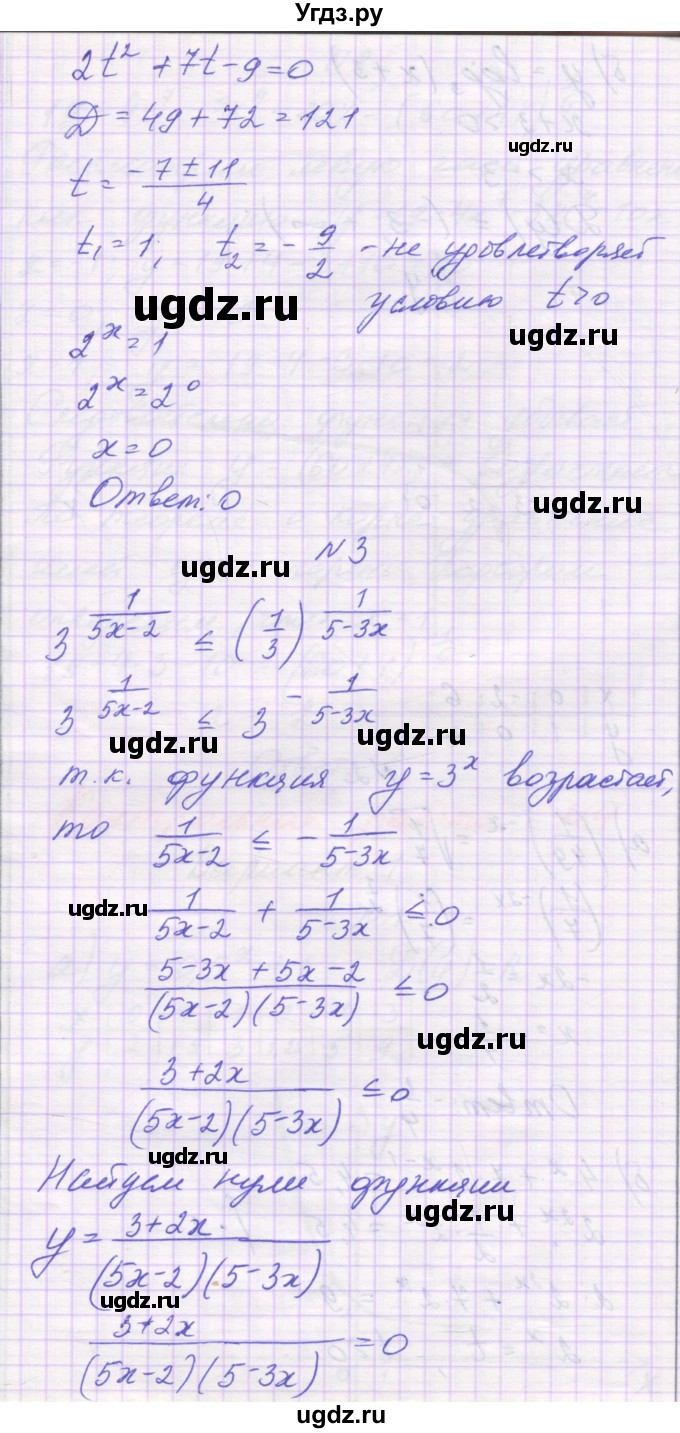 Угдз.ру
2t² + 7t - 9 = 0
D = 49 + 72 = 121
ugdz.ru
t = (-7 ± 11)/4
t₁ = 1; t₂ = -9/2 - не удовлетворяет
условию t > 0
ugdz.ru
ugdz.ru
2^x = 1
2^x = 2^0
x = 0
Ответ: 0
ugdz.ru
N 3
ugdz.ru
3^(1/(5x-2)) ≤ (1/3)^(1/(5-3x))
3^(1/(5x-2)) ≤ 3^(-1/(5-3x))
ugdz.ru ugdz.ru
т.к. функция y = 3^x возрастает,
то 1/(5x-2) ≤ - 1/(5-3x)
ugdz.ru
1/(5x-2) + 1/(5-3x) ≤ 0
(5-3x+5x-2)/((5x-2)(5-3x)) ≤ 0
ugdz.ru
(3+2x)/((5x-2)(5-3x)) ≤ 0
ugdz.ru
Найдем нули функции
ugdz.ru
y = (3+2x)/((5x-2)(5-3x))
ugdz.ru
(3+2x)/((5x-2)(5-3x)) = 0
ugdz.ru